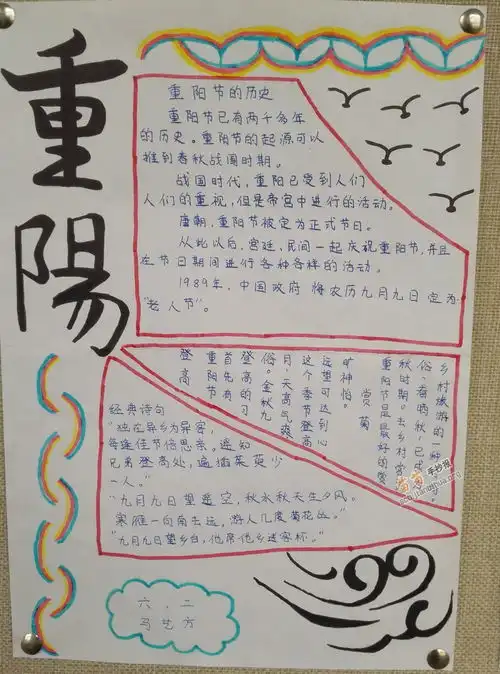 重陽
重阳节的历史
重阳节已有两千多年
的历史。重阳节的起源可以
推到春秋战国时期。
战国时代，重阳已受到人们
人们的重视，但是帝宫中进行的活动。
唐朝，重阳节被定为正式节日。
从此以后，宫廷，民间一起庆祝重阳节，并且
在节日期间进行各种各样的活动。
1989年，中国政府将农历九月九日定为
"老人节"。
登高
重阳节
首先有
登高的习
俗。金秋九
月，天高气爽
这个季节登高
远望可达到心
旷神怡。
赏菊
重阳节是最好的赏
秋时期。去乡村赏
俗，春晒秋，已成
乡村旅游的一种
经典诗句
"独在异乡为异客，
每逢佳节倍思亲。遥知
兄弟登高处，遍插茱萸少
一人。"
"九月九日望遥空，秋水秋天生夕风。
寒雁一向南去远，游人几度菊花丛。"
"九月九日望乡台，他席他乡送客杯。"
六．二
手抄报